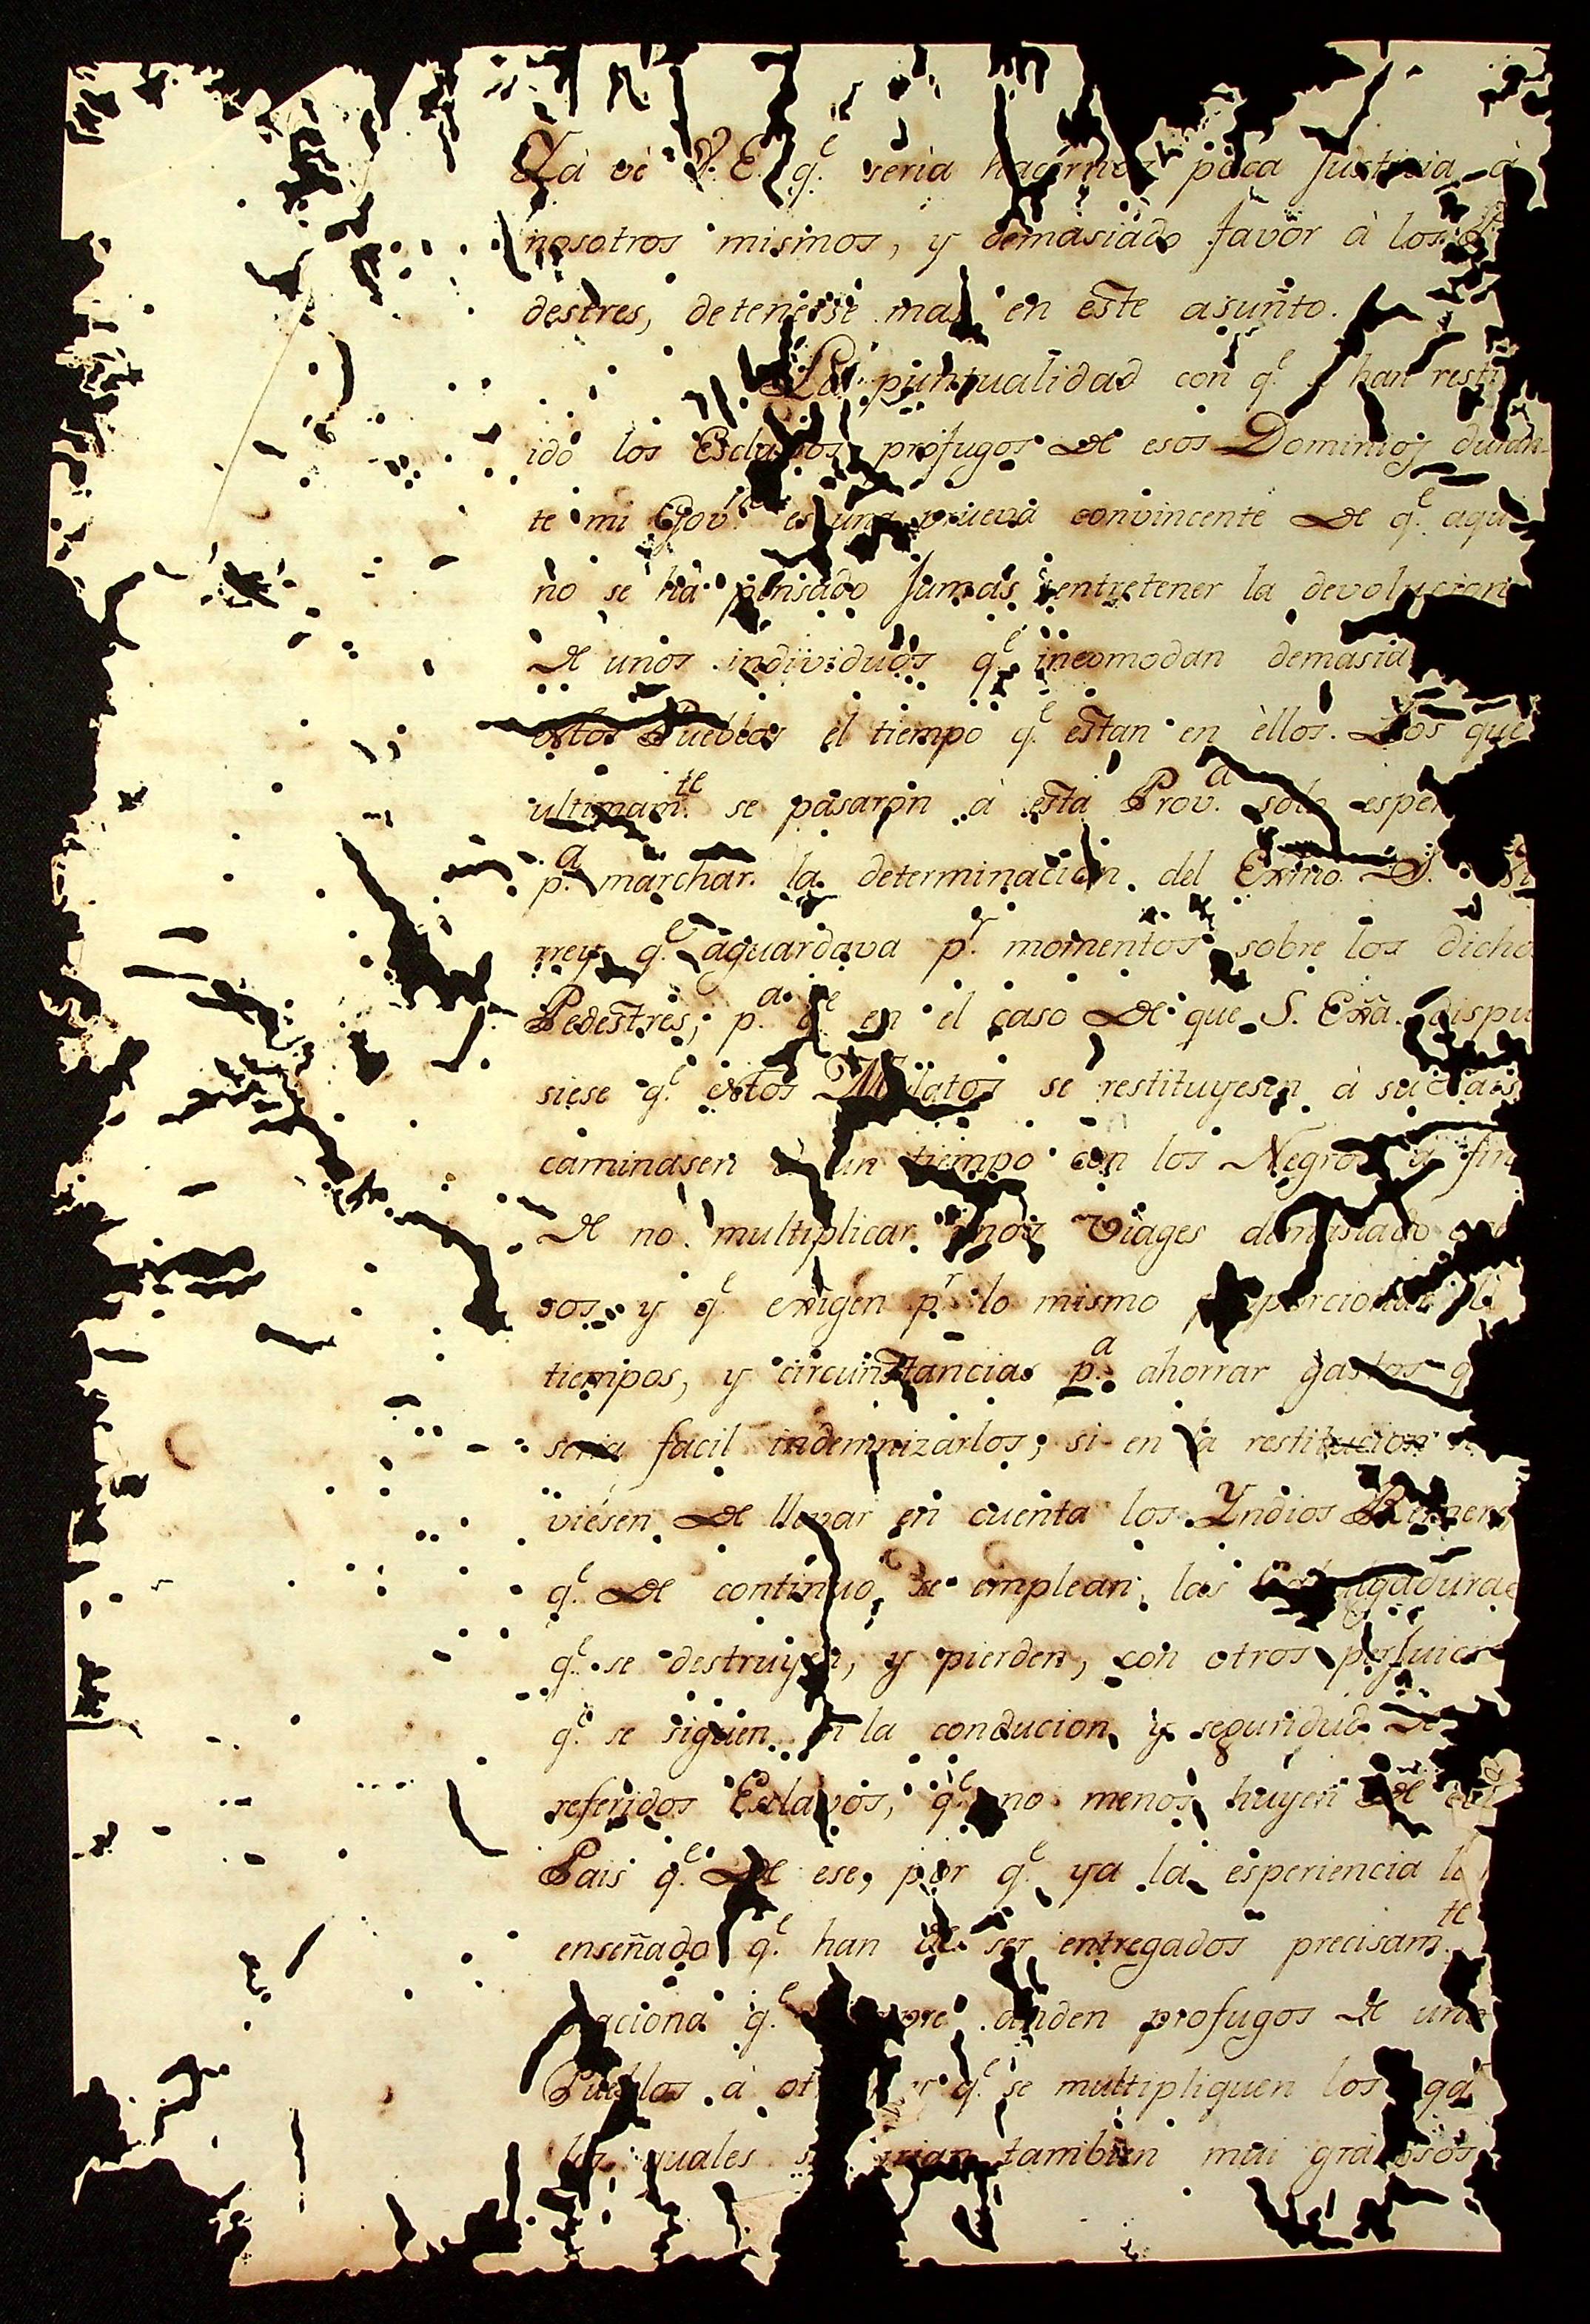 Yà vè V. E. q.ᵉ seria hacernos poca Justicia à
nosotros mismos, y demasiado favor à los
destres, detenerse mas en este asunto.
La puntualidad con q.ᵉ han resti
ido los Esclavos profugos de esos Dominios duran-
te mi Gov.ⁿᵒ es una prueva convincente de q.ᵉ aqui
no se hà pensado Jamàs entretener la devolucion
de unos individuos q.ᵉ incomodan demasia
estos Pueblos el tiempo q.ᵉ estan en èllos. Los que
ultimam.ᵗᵉ se pasaron à esta Prov.ᵃ solo esper
p.ᵃ marchar la determinacion del Exmo. S.
rrey q.ᵉ aguardava p.ʳ momentos sobre los dicho
Pedestres, p.ᵃ q.ᵉ en el caso de que S. Exa. dispu
siese q.ᵉ estos Mulatos se restituyesen à su
caminasen à un tiempo con los Negros à fin
de no multiplicar unos viages demasiado
sos y q.ᵉ exigen p.ʳ lo mismo proporcionar
tiempos, y circunstancias p.ᵃ ahorrar gastos q
seria facil indemnizarlos; si en la restitucion
viésen de llevar en cuenta los Yndios Remeros
q.ᵉ de continuo se emplean, las Cavalgaduras
q.ᵉ se destruyen, y pierden, con otros perjuicio
q.ᵉ se siguen en la conducion y seguridad de
referidos Esclavos, q.ᵉ no menos huyen de
Pais q.ᵉ de ese, por q.ᵉ ya la esperiencia
enseñado q.ᵉ han de ser entregados precisam.ᵗᵉ
q.ᵉ anden profugos de uno
Pueblos à q.ᵉ se multipliquen los
los quales tambien mui gravosos